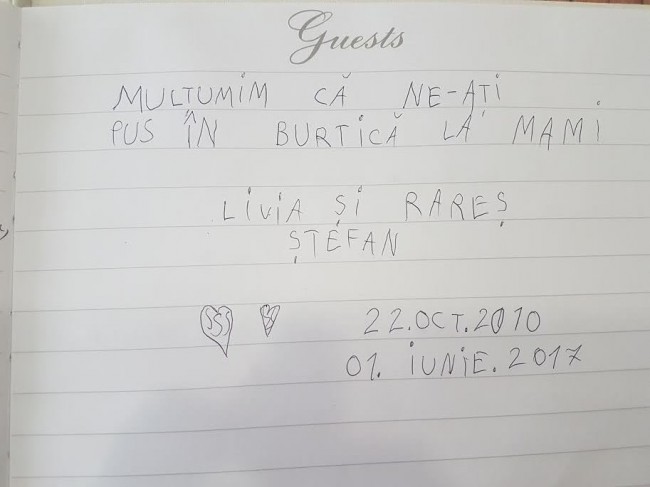 Guests
MULTUMIM CĂ NE-AȚI
PUS ÎN BURTICĂ LA MAMI
LIVIA ȘI RAREȘ
ȘTEFAN
22.OCT.2010
01. IUNIE.2017